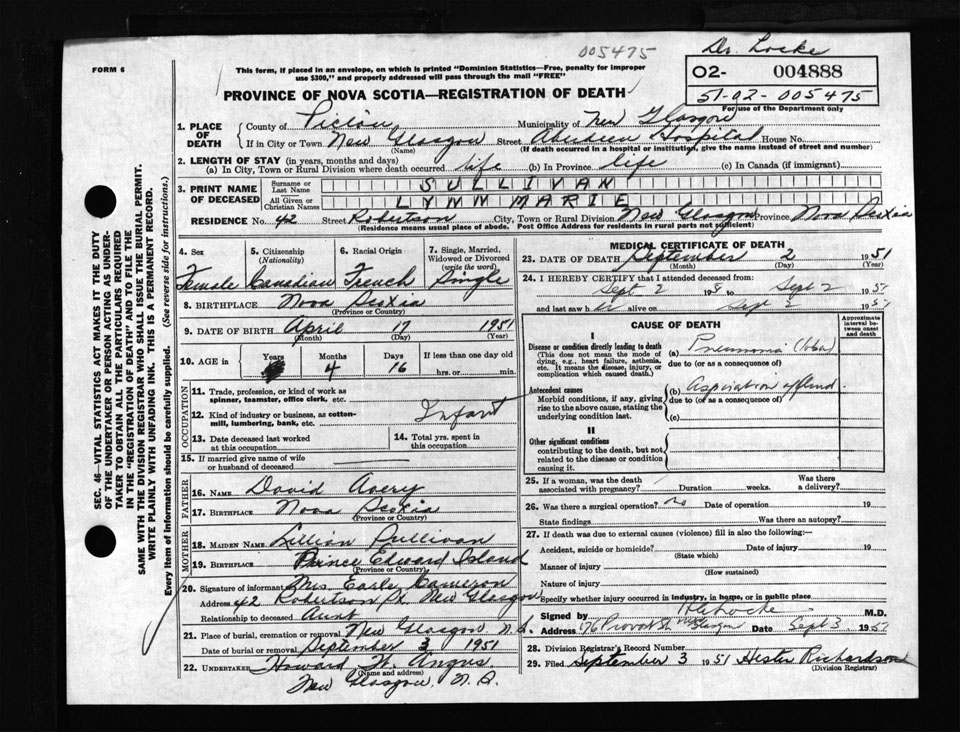 005475
Dr. Locke
FORM 6
This form, if placed in an envelope, on which is printed "Dominion Statistics—Free, penalty for improper
use $300," and properly addressed will pass through the mail "FREE"
02- 004888
51-02-005475
For use of the Department only
PROVINCE OF NOVA SCOTIA—REGISTRATION OF DEATH
1. PLACE OF DEATH
County of Pictou, Municipality of New Glasgow
If in City or Town New Glasgow Street Aberdeen Hospital House No.
(Name) (If death occurred in a hospital or institution, give the name instead of street and number)
2. LENGTH OF STAY (in years, months and days)
(a) In City, Town or Rural Division where death occurred life (b) In Province life (c) In Canada (if immigrant)
3. PRINT NAME OF DECEASED
Surname or Last Name SULLIVAN
All Given or Christian Names LYNN MARIE
RESIDENCE No. 42 Street Robertson City, Town or Rural Division New Glasgow Province Nova Scotia
(Residence means usual place of abode. Post Office Address for residents in rural parts not sufficient)
4. Sex 5. Citizenship (Nationality) 6. Racial Origin 7. Single, Married, Widowed or Divorced (write the word)
Female Canadian French Single
8. BIRTHPLACE Nova Scotia
(Province or Country)
9. DATE OF BIRTH April 17 1951
(Month) (Day) (Year)
10. AGE in Years Months Days If less than one day old
4 16 hrs. or min.
OCCUPATION
11. Trade, profession, or kind of work as
spinner, teamster, office clerk, etc.
12. Kind of industry or business, as cotton-
mill, lumbering, bank, etc. Infant
13. Date deceased last worked
at this occupation
14. Total yrs. spent in
this occupation
15. If married give name of wife
or husband of deceased
FATHER
16. NAME David Avery
17. BIRTHPLACE Nova Scotia
(Province or Country)
MOTHER
18. MAIDEN NAME Lillian Sullivan
19. BIRTHPLACE Prince Edward Island
(Province or Country)
20. Signature of informant Mrs Earle Cameron
Address 42 Robertson St. New Glasgow
Relationship to deceased Aunt
21. Place of burial, cremation or removal New Glasgow N.S.
Date of burial or removal September 3 1951
22. UNDERTAKER Howard W. Angus
(Name and address)
New Glasgow, N.S.
MEDICAL CERTIFICATE OF DEATH
23. DATE OF DEATH September 2 1951
(Month) (Day) (Year)
24. I HEREBY CERTIFY that I attended deceased from:
Sept 2 to Sept 2 1951
and last saw h alive on Sept 2 1951
CAUSE OF DEATH
Approximate interval between onset and death
I
Disease or condition directly leading to death
(This does not mean the mode of
dying, e.g., heart failure, asthenia,
etc. It means the disease, injury, or
complication which caused death.)
(a) Pneumonia
due to (or as a consequence of)
Antecedent causes
Morbid conditions, if any, giving
rise to the above cause, stating the
underlying condition last.
(b) Aspiration of
due to (or as a consequence of)
(c)
II
Other significant conditions
contributing to the death, but not
related to the disease or condition
causing it.
25. If a woman, was the death
associated with pregnancy? Duration weeks. Was there
a delivery?
26. Was there a surgical operation? no Date of operation 19
State findings Was there an autopsy?
27. If death was due to external causes (violence) fill in also the following:
Accident, suicide or homicide? Date of injury 19
(State which)
Manner of injury
(How sustained)
Nature of injury
Specify whether injury occurred in industry, in home, or in public place
Signed by Locke M.D.
Address 176 Provost St New Glasgow Date Sept 3 1951
28. Division Registrar's Record Number
29. Filed September 3 1951 Hester Richardson
(Division Registrar)
SEC. 46—VITAL STATISTICS ACT MAKES IT THE DUTY
OF THE UNDERTAKER OR PERSON ACTING AS UNDER-
TAKER TO OBTAIN ALL THE PARTICULARS REQUIRED
IN THE "REGISTRATION OF DEATH" AND TO FILE THE
SAME WITH THE DIVISION REGISTRAR WHO SHALL ISSUE THE BURIAL PERMIT.
WRITE PLAINLY WITH UNFADING INK. THIS IS A PERMANENT RECORD.
Every item of Information should be carefully supplied. (See reverse side for instructions.)